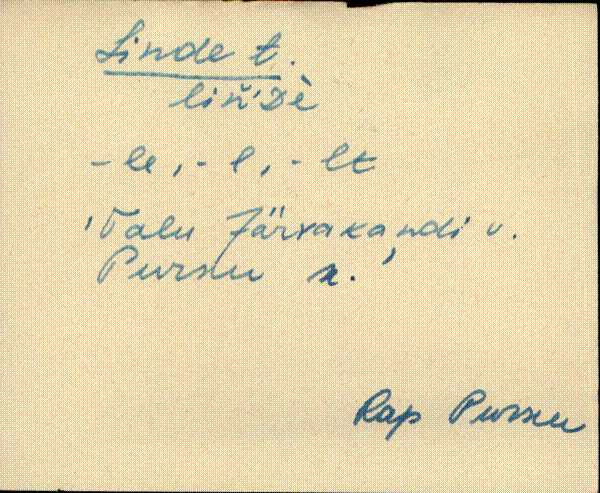 Linde t.
liň'Dè
-le, -l, -lt
'Talu Järvakandi v.
Purku k.'
Rap Purku